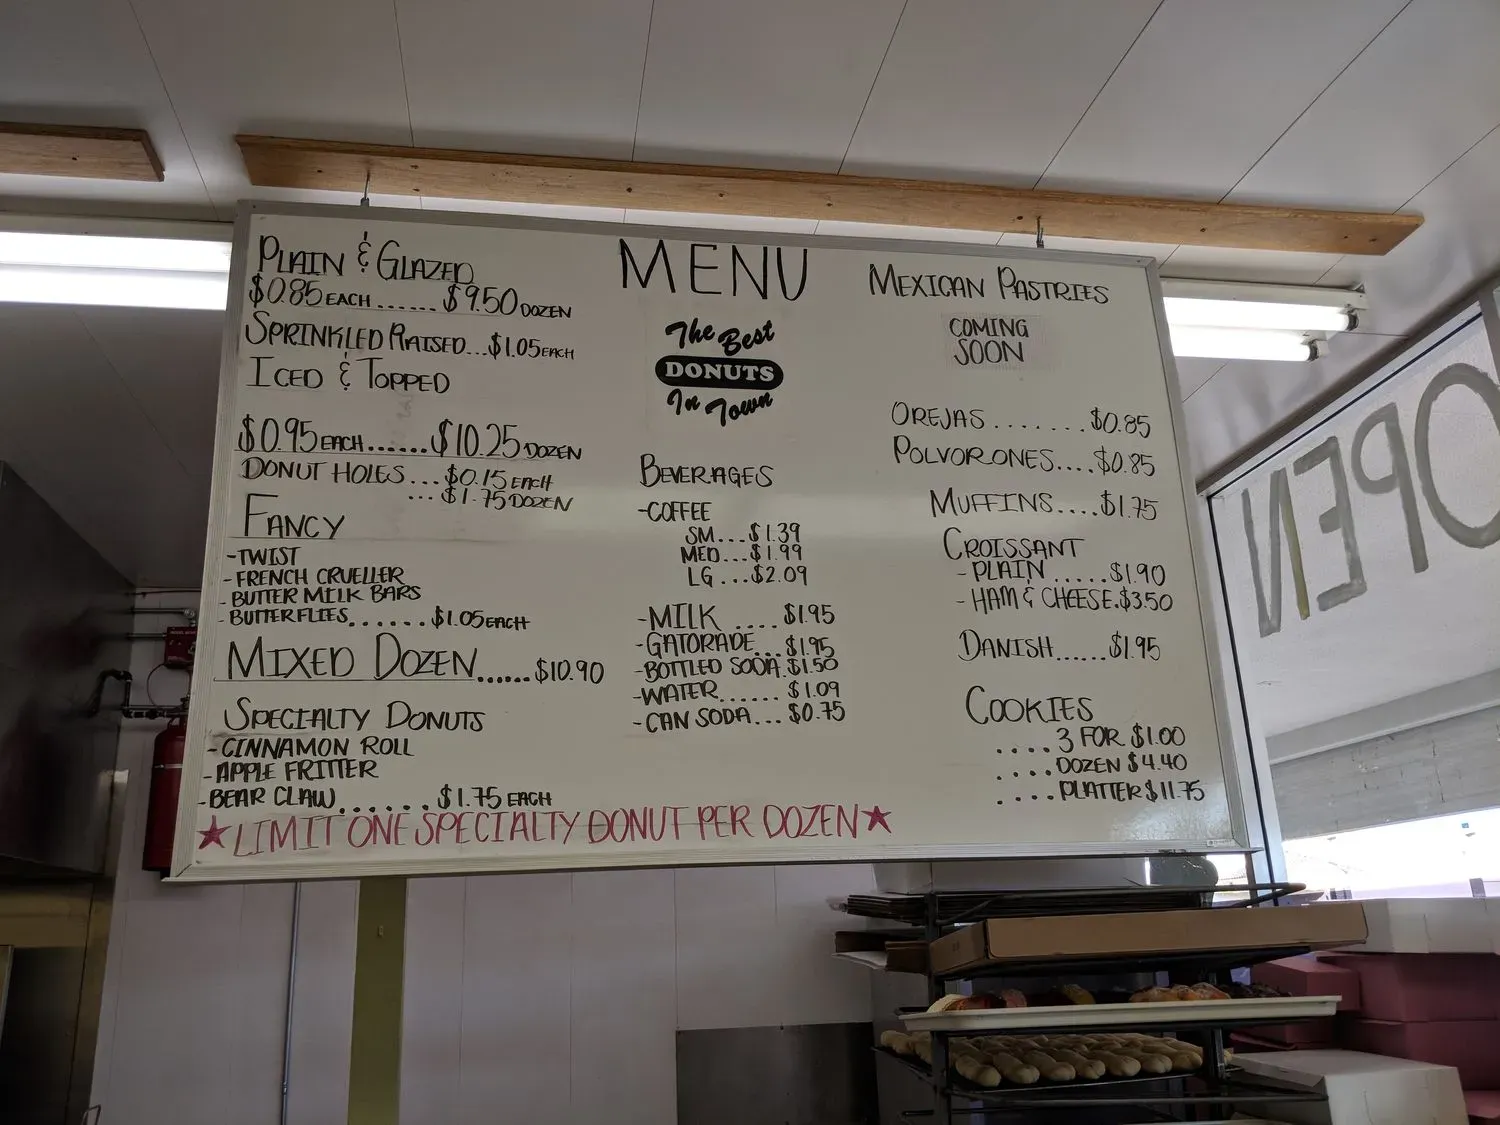 PLAIN & GLAZED
$0.85 EACH ...... $9.50 DOZEN
SPRINKLED RAISED...$1.05 EACH
ICED & TOPPED
$0.95 EACH......$10.25 DOZEN
DONUT HOLES ...$0.15 EACH
...$1.75 DOZEN
FANCY
-TWIST
-FRENCH CRUELLER
-BUTTER MILK BARS
-BUTTERFLIES......$1.05 EACH
MIXED DOZEN......$10.90
SPECIALTY DONUTS
-CINNAMON ROLL
-APPLE FRITTER
-BEAR CLAW......$1.75 EACH
★LIMIT ONE SPECIALTY DONUT PER DOZEN★
MENU
The Best
DONUTS
In Town
BEVERAGES
-COFFEE
SM...$1.39
MED...$1.99
LG...$2.09
-MILK ....$1.95
-GATORADE...$1.95
-BOTTLED SODA.$1.50
-WATER......$1.09
-CAN SODA...$0.75
MEXICAN PASTRIES
COMING
SOON
OREJAS.......$0.85
POLVORONES....$0.85
MUFFINS....$1.75
CROISSANT
-PLAIN.....$1.90
-HAM & CHEESE.$3.50
DANISH......$1.95
COOKIES
....3 FOR $1.00
....DOZEN $4.40
....PLATTER $11.75
OPEN